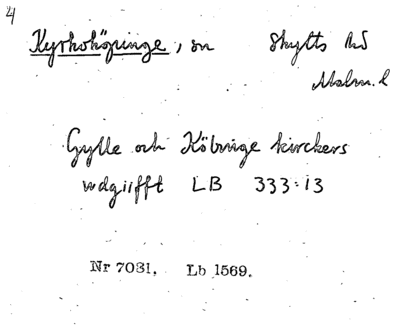 4
Kyrkoköpinge, sn Skytts hd
Malm. l
Gylle och Köbinge kirckers
wdgiifft LB 333:13
Nr 7031. Lb 1569.